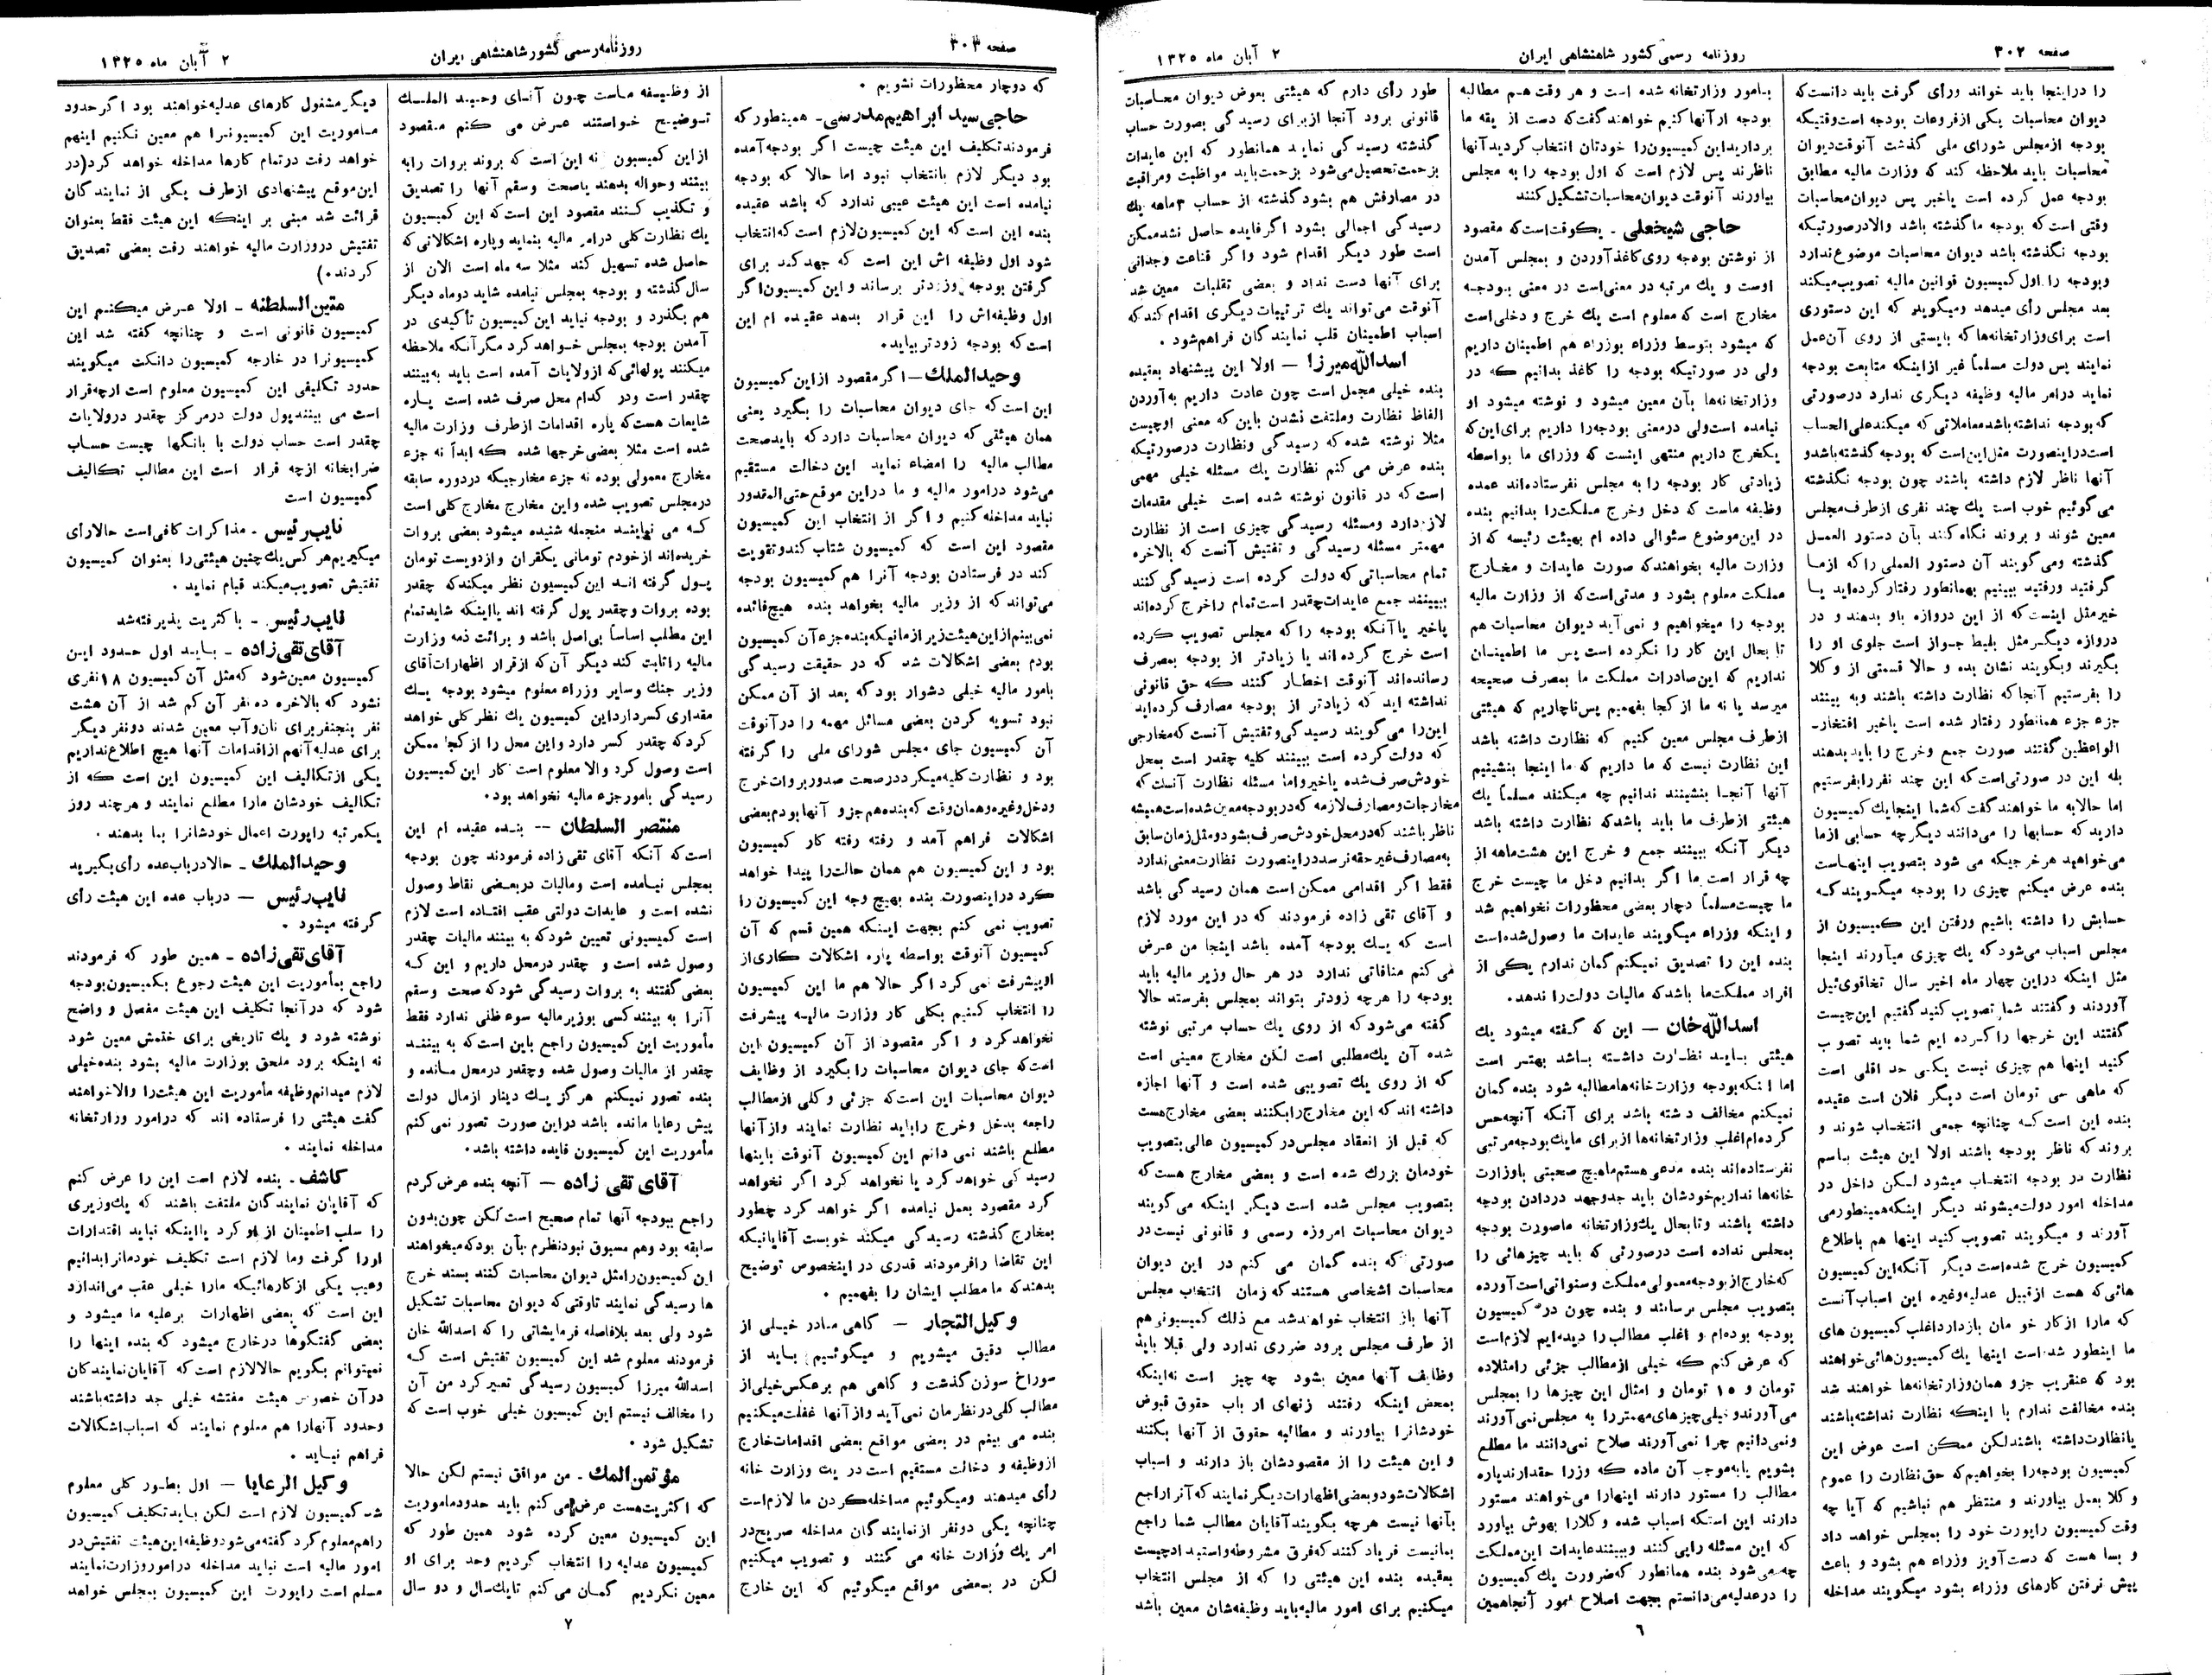 صفحه ۳۰۲
روزنامه رسمی کشور شاهنشاهی ایران
۲ آبان ماه ۱۳۲۵
را دراینجا باید خواند ورأی گرفت باید دانست‌که
دیوان محاسبات یکی ازفروعات بودجه است‌وقتیکه
بودجه ازمجلس شورای ملی گذشت آنوقت‌دیوان
محاسبات باید ملاحظه کند که وزارت مالیه مطابق
بودجه عمل کرده است یاخیر پس دیوان‌محاسبات
وقتی است‌که بودجه ماگذشته باشد والادرصورتیکه
بودجه نگذشته باشد دیوان محاسبات موضوع‌ندارد
وبودجه را اول‌کمیسیون قوانین مالیه تصویب‌میکند
بعد مجلس رأی میدهد ومیگوید که این دستوری
است برای‌وزارتخانه‌ها که بایستی از روی آن‌عمل
نمایند پس دولت مسلماً غیر ازاینکه متابعت بودجه
نماید درامر مالیه وظیفه دیگری ندارد درصورتی
که‌بودجه نداشته‌باشدمعاملاتی که میکندعلی‌الحساب
است‌دراینصورت مثل‌این‌است‌که بودجه گذشته‌باشدو
آنها ناظر لازم داشته باشند چون بودجه نگذشته
می‌گوئیم خوب است یك چند نفری ازطرف‌مجلس
معین شوند و بروند نگاه‌کنند بآن دستور العمل
گذشته ومی‌گویند آن دستور العملی راکه ازما
گرفتید ورفتید ببینیم بهمانطور رفتار کرده‌اید یا
خیرمثل اینست‌که از این دروازه باو بدهند و در
دروازه دیگرمثل بلیط جواز است جلوی او را
بگیرند وبگویند نشان بده و حالا قسمتی از وکلا
را بفرستیم آنجاکه نظارت داشته باشند وبه بینند
جزء جزء همانطور رفتار شده است یاخیر افتخار-
الواعظین‌گفتند صورت جمع وخرج را بایدبدهند
بله این در صورتی‌است‌که این چند نفررابفرستیم
اما حالابه ما خواهندگفت‌که‌شما اینجایك‌کمیسیون
دارید که حسابها را می‌دانند دیگرچه حسابی ازما
می‌خواهید هرخرجیکه می شود بتصویب اینهاست
بنده عرض میکنم چیزی را بودجه میگویندکه
حسابش را داشته باشیم ورفتن این کمیسیون از
مجلس اسباب می‌شودکه یك چیزی میآورند اینجا
مثل اینکه دراین چهار ماه اخیر سال تخاقوی‌ئیل
آوردند وگفتند شما تصویب کنیدگفتیم این‌چیست
گفتند این خرجها راکرده ایم شما باید تصویب
کنید اینها هم چیزی نیست یکی حد اقلی است
که ماهی سی تومان است دیگر فلان است عقیده
بنده این است‌که چنانچه جمعی انتخاب شوند و
بروند که ناظر بودجه باشند اولا این هیئت باسم
نظارت در بودجه انتخاب میشود لکن داخل در
مداخله امور دولت‌میشوند دیگر اینکه‌همینطورمی
آورند و میگویند تصویب کنید اینها هم باطلاع
کمیسیون خرج شده‌است دیگر آنکه‌این‌کمیسیون
هائی‌که هست ازقبیل عدلیه‌وغیره این اسباب‌آنست
که مارا ازکار خو مان بازدارداغلب کمیسیون های
ما اینطور شد‌است اینها یك‌کمیسیون‌هائی‌خواهند
بود که عنقریب جزو همان‌وزارتخانه‌ها خواهند شد
بنده مخالفت ندارم با اینکه نظارت نداشته‌باشند
یانظارت‌داشته باشندلکن ممکن است عوض این
کمیسیون بودجه‌را بخواهیم‌که حق‌نظارت را عموم
وکلا بعمل بیاورند و منتظر هم نباشیم که آیا چه
وقت‌کمیسیون راپورت خود را بمجلس خواهد داد
و بسا هست که دست‌آویز وزراء هم بشود و باعث
پیش نرفتن کارهای وزراء بشود میگویند مداخله
بامور وزارتخانه شده است و هر وقت هم مطالبه
بودجه ازآنها کنیم خواهند گفت‌که دست از یقه ما
برداریداین‌کمیسیون‌را خودتان انتخاب کردیدآنها
ناظرند پس لازم است که اول بودجه را به مجلس
بیاورند آنوقت دیوان‌محاسبات‌تشکیل‌کنند
حاجی شیخعلی - یکوقت‌است‌که مقصود
از نوشتن بودجه روی‌کاغذآوردن و بمجلس آمدن
اوست و یك مرتبه در معنی‌است در معنی بودجه
مخارج است که معلوم است یك خرج و دخلی‌است
که میشود بتوسط وزراء بوزراء هم اطمینان داریم
ولی در صورتیکه بودجه را کاغذ بدانیم که در
وزارتخانه‌ها بآن معین میشود و نوشته میشود او
نیامده است‌ولی درمعنی بودجه‌را داریم برای‌این‌که
یکخرج داریم منتهی اینست که وزرای ما بواسطه
زیادتی کار بودجه را به مجلس نفرستاده‌اند عمده
وظیفه ماست که دخل وخرج مملکت‌را بدانیم بنده
در این‌موضوع سئوالی داده ام بهیئت رئیسه که‌از
وزارت مالیه بخواهندکه صورت عایدات و مخارج
مملکت معلوم بشود و مدتی‌است‌که از وزارت مالیه
بودجه را میخواهیم و نمی‌آید دیوان محاسبات هم
تا بحال این کار را نکرده است پس ما اطمینان
نداریم که این‌صادرات مملکت ما بمصرف صحیحه
میرسد یا نه ما از کجا بفهمیم پس‌ناچاریم که هیئتی
ازطرف مجلس معین کنیم که نظارت داشته باشد
این نظارت نیست که ما داریم که ما اینجا بنشینیم
آنها آنجا بنشینند ندانیم چه میکنند مسلماً یك
هیئتی ازطرف ما باید باشدکه نظارت داشته باشد
دیگر آنکه ببینند جمع و خرج این هشت‌ماهه از
چه قرار است ما اگر بدانیم دخل ما چیست خرج
ما چیست‌مسلماً دچار بعضی محظورات نخواهیم شد
و اینکه وزراء میگویند عایدات ما وصول‌شده‌است
بنده این را تصدیق نمیکنم‌گمان ندارم یکی از
افراد مملکت‌ما باشدکه مالیات دولت‌را ندهد.
اسدالله‌خان – این که گفته میشود یك
هیئتی باید نظارت داشته باشد بهتر است
اما اینکه‌بودجه وزارت‌خانه‌هامطالبه شود بنده‌گمان
نمیکنم مخالف دشته باشد برای آنکه آنچه‌حس
گرده‌ام‌اغلب وزارتخانه‌ها ازبرای مایك‌بودجه‌مرتبی
نفرستاده‌اند بنده مدعی هستم‌ماهیچ صحبتی باوزارت
خانه‌ها نداریم‌خودشان باید جدوجهد دردادن بودجه
داشته باشند وتابحال یك‌وزارتخانه ماصورت بودجه
بمجلس نداده است درصورتی که باید چیزهائی را
که‌خارج‌ازبودجه‌معمولی‌مملکت وسنواتی‌است‌آورده
بتصویب مجلس برسانند و بنده چون در کمیسیون
بودجه بوده‌ام و اغلب مطالب‌را دیده‌ایم لازم‌است
که عرض‌کنم که خیلی ازمطالب جزئی رامثلاده
تومان و ۱۵ تومان و امثال این چیزها را بمجلس
می‌آورندوخیلی‌چیزهای‌مهمتررا به مجلس‌نمی‌آورند
ونمی‌دانیم چرا نمی‌آورند صلاح نمی‌دانند ما مطلع
بشویم یابه‌موجب آن ماده که وزرا حقدارندپاره
مطالب را مستور دارند اینهارا می‌خواهند مستور
دارند این استکه اسباب شده وکلارا بهوش بیاورد
که این مسئله رایی‌کنند وببینندعایدات این‌مملکت
چه‌می‌شود بنده همانطور که‌ضرورت یك کمیسیون
را درعدلیه‌می‌دانستم بجهت اصلاح امور آنجاهمین
طور رأی دارم که هیئتی بعوض دیوان محاسبات
قانونی برود آنجا ازبرای رسیدگی بصورت حساب
گذشته رسیدگی نماید همانطور که این عایدات
بزحمت‌تحصیل‌می‌شود بزحمت‌باید مواظبت ومراقبت
در مصارفش هم بشودگذشته از حساب ۳ماهه یك
رسیدگی اجمالی بشود اگرفایده حاصل نشدممکن
است طور دیگر اقدام شود واگر قناعت وجدانی
برای آنها دست نداد و بعضی تقلبات معین شد
آنوقت می‌تواند یك ترتیبات دیگری اقدام کندکه
اسباب اطمینان قلب نمایندگان فراهم‌شود .
اسدالله‌میرزا – اولا این پیشنهاد بعقیده
بنده خیلی مجمل است چون عادت داریم به‌آوردن
الفاظ نظارت وملتفت نشدن باین که معنی اوچیست
مثلا نوشته شده‌که رسیدگی ونظارت درصورتیکه
بنده عرض می‌کنم نظارت یك مسئله خیلی مهمی
است‌که در قانون نوشته شده است خیلی مقدمات
لازدارد ومسئله رسیدگی چیزی است از نظارت
مهمتر مسئله رسیدگی و تفتیش آنست که بالاخره
تمام محاسباتی‌که دولت کرده است رسیدگی‌کنند
ببینند جمع عایدات‌چقدر است‌تمام راخرج کرده‌اند
یاخیر یاآنکه بودجه راکه مجلس تصویب کرده
است خرج کرده‌اند یا زیادتر از بودجه بمصرف
رسانده‌اند آنوقت اخطار کنند که حق قانونی
نداشته اید که زیادتر از بودجه مصارف کرده‌اید
این‌را می‌گویند رسیدگی‌وتفتیش آنست که‌مخارجی
که دولت‌کرده است ببینند کلیه چقدر است بمحل
خودش‌صرف‌شده یاخیرواما مسئله نظارت آنست‌که
مخارجات‌ومصارف‌لازمه که‌دربودجه‌معین‌شده‌است‌همیشه
ناظرباشند که‌درمحل‌خودش‌صرف‌بشودومثل‌زمان‌سابق
به‌مصارف‌غیرحقه‌نرسددراینصورت نظارت‌معنی‌ندارد
فقط اگر اقدامی ممکن است همان رسیدگی باشد
و آقای تقی زاده فرمودند که در این مورد لازم
است که یك بودجه آمده باشد اینجا من عرض
می‌کنم منافاتی ندارد در هر حال وزیر مالیه باید
بودجه را هرچه زودتر بتواند بمجلس بفرستد حالا
گفته می‌شودکه از روی یك حساب مرتبی نوشته
شده آن یك‌مطلبی است لکن مخارج معینی است
که از روی یك تصویبی شده است و آنها اجازه
داشته‌اندکه این مخارج‌رابکنند بعضی مخارج‌هست
که قبل از انعقاد مجلس‌در کمیسیون عالی‌بتصویب
خودمان بزرك شده است و بعضی مخارج هست‌که
بتصویب مجلس شده است دیگر اینکه می‌گویند
دیوان محاسبات امروزه رسمی و قانونی نیست‌در
صورتی که بنده گمان می کنم در این دیوان
محاسبات اشخاصی هستندکه زمان انتخاب مجلس
آنها باز انتخاب خواهندشد مع ذلك کمیسیونی‌هم
از طرف مجلس برود ضرری ندارد ولی قبلا باید
وظایف آنها معین بشود چه چیز است نه‌اینکه
بمحض اینکه رفتند زنهای ار باب حقوق قبوض
خودشانرا بیاورند و مطالبه حقوق از آنها بکنند
و این هیئت را از مقصودشان باز دارند و اسباب
اشکالات‌شودوبعضی‌اظهارات‌دیگرنمایندکه‌آنراراجع
بآنها نیست هرچه بگویندآقایان مطالب شما راجع
بمانیست فریادکنندکه‌فرق مشروطه‌واستبدادچیست
بعقیده بنده این هیئتی را که از مجلس انتخاب
میکنیم برای امور مالیه‌باید وظیفه‌شان معین باشد
٦
صفحه ۳۰۳
روزنامه‌رسمی کشورشاهنشاهی ایران
۲ آبان ماه ۱۳۲۵
که دوچار محظورات نشویم .
حاجی‌سید ابراهیم‌مدرسی- همینطورکه
فرمودندتکلیف این هیئت چیست اگر بودجه‌آمده
بود دیگر لازم بانتخاب نبود اما حالا که بودجه
نیامده است این هیئت عیبی ندارد که باشد عقیده
بنده این است‌که این کمیسیون‌لازم است‌که‌انتخاب
شود اول وظیفه اش این است که جهدکند برای
گرفتن بودجه وزودتر برساند و این‌کمیسیون‌اگر
اول وظیفه‌اش را این قرار بدهد عقیده ام این
است‌که بودجه زودتربیاید.
وحیدالملك–اگرمقصود ازاین‌کمیسیون
این است‌که جای دیوان محاسبات را بگیرد یعنی
همان هیئتی‌که دیوان محاسبات داردکه بایدصحت
مطالب مالیه را امضاء نماید این دخالت مستقیم
می‌شود درامور مالیه و ما دراین موقع‌حتی‌المقدور
نباید مداخله‌کنیم و اگر از انتخاب این کمیسیون
مقصود این است که کمیسیون شتاب کندوتقویت
کند در فرستادن بودجه آنرا هم‌کمیسیون بودجه
می‌تواندکه از وزیر مالیه بخواهد بنده هیچ‌فائده
نمی‌بینم‌ازاین‌هیئت‌زیرازمانیکه‌بنده‌جزءآن‌کمیسیون
بودم بعضی اشکالات شد که در حقیقت رسیدگی
بامور مالیه خیلی دشوار بودکه بعد از آن ممکن
نبود تسویه کردن بعضی مسائل مهمه را درآنوقت
آن کمیسیون جای مجلس شورای ملی را گرفته
بود و نظارت‌کلیه‌میکرددرصحت صدوربروات‌خرج
ودخل‌وغیره‌وهمان‌وقت‌که‌بنده‌هم‌جزوآنهابودم‌بعضی
اشکالات فراهم آمد و رفته رفته کار کمیسیون
بود و این‌کمیسیون هم همان حالت‌را پیدا خواهد
کرد دراینصورت بنده بهیچ وجه این‌کمیسیون را
تصویب نمی کنم بجهت اینکه همین قسم که آن
کمیسیون آنوقت بواسطه پاره اشکالات کاری‌از
اوپیشرفت نمی‌کرد اگر حالا هم ما این کمیسیون
را انتخاب کنیم بکلی کار وزارت مالیه پیشرفت
نخواهدکرد و اگر مقصود از آن کمیسیون این
است‌که جای دیوان محاسبات رابگیرد از وظایف
دیوان محاسبات این است‌که جزئی و کلی ازمطالب
راجعه بدخل وخرج راباید نظارت نمایند وازآنها
مطلع باشند نمی‌دانم این‌کمیسیون آنوقت باینها
رسیدگی خواهد کرد یا نخواهد کرد اگر نخواهد
کرد مقصود بعمل نیامده اگر خواهد کرد چطور
بمخارج گذشته رسیدگی میکند خوبست آقایانیکه
این تقاضا رافرمودند قدری در اینخصوص توضیح
بدهندکه مامطلب ایشان را بفهمیم .
وکیل‌التجار – گاهی مادر خیلی از
مطالب دقیق میشویم و میگوئیم باید از
سوراخ سوزن‌گذشت و گاهی هم برعکس‌خیلی‌از
مطالب‌کلی‌درنظرمان نمی‌آید وازآنها غفلت‌میکنیم
بنده می بینم در بعضی مواقع بعضی اقدامات‌خارج
ازوظیفه و دخالت مستقیم است‌در یك وزارت خانه
رأی میدهند ومیگوئیم مداخله‌کردن ما لازم‌است
چنانچه یکی دونفر ازنمایندگان مداخله صریح‌در
امر یك وزارت خانه می کنند و تصویب میکنیم
لکن در بعضی مواقع میگوئیم که این خارج
از وظیفه ماست چون آقای وحید الملك
توضیح خواستند عرض می کنم مقصود
ازاین کمیسیون نه این است‌که بروند بروات رابه
بینند وحواله بدهند یاصحت وسقم آنها را تصدیق
و تکذیب کنند مقصود این است‌که این کمیسیون
یك نظارت‌کلی درامر مالیه بنماید وپاره اشکالاتی‌که
حاصل شده تسهیل کند مثلا سه ماه است الان از
سال‌گذشته و بودجه بمجلس نیامده شاید دوماه دیگر
هم بگذرد و بودجه نیاید این‌کمیسیون تأکیدی در
آمدن بودجه بمجلس خواهدکرد مگرآنکه ملاحظه
میکنند پولهائی‌که ازولایات آمده است باید به‌بینند
چقدر است ودر کدام محل صرف شده است پاره
شایعات هست‌که پاره اقدامات ازطرف وزارت مالیه
شده است مثلا بعضی‌خرجها شده که ابداً نه جزء
مخارج معمولی بوده نه جزء مخارجیکه دردوره سابقه
درمجلس تصویب شده واین مخارج مخارج کلی است
که می نمایند منجمله شنیده میشود بعضی بروات
خریده‌اند ازخودم تومانی یکقران وازدویست تومان
پول گرفته اند این‌کمیسیون نظر میکندکه چقدر
بوده بروات وچقدر پول گرفته اند یااینکه شایدتمام
این مطلب اساساً بی‌اصل باشد و برائت ذمه وزارت
مالیه راثابت کند دیگر آن‌که ازقرار اظهارات‌آقای
وزیر جنك وسایر وزراء معلوم میشود بودجه یك
مقداری‌کسرداردواین کمیسیون یك نظرکلی خواهد
کردکه چقدر کسر دارد واین محل را ازکجا ممکن
است وصول کرد والا معلوم است کار این‌کمیسیون
رسیدگی بامورجزء مالیه نخواهد بود.
منتصر السلطان -- بنده عقیده ام این
است‌که آنکه آقای تقی‌زاده فرمودند چون بودجه
بمجلس نیامده است ومالیات دربعضی نقاط وصول
نشده است و عایدات دولتی عقب افتاده است لازم
است کمیسیونی تعیین شودکه به بینند مالیات چقدر
وصول شده است و چقدر درمحل داریم و این که
بعضی گفتند به بروات رسیدگی شودکه صحت وسقم
آنرا به بینندکسی بوزیرمالیه سوءظنی ندارد فقط
مأموریت این‌کمیسیون راجع باین است‌که به بینند
چقدر از مالیات وصول شده وچقدر درمحل مانده و
بنده تصور نمیکنم هرگز یك دینار ازمال دولت
پیش رعایا مانده باشد دراین صورت تصور نمی‌کنم
مأموریت این کمیسیون فایده داشته باشد.
آقای تقی زاده – آنچه بنده عرض‌کردم
راجع ببودجه آنها تمام صحیح است لکن چون‌بدون
سابقه بود وهم مسبوق نبودنظرم بآن بودکه‌میخواهند
این‌کمیسیون‌رامثل دیوان محاسبات کنند بسند خرج
ها رسیدگی نمایند تاوقتی‌که دیوان محاسبات تشکیل
شود ولی بعد بلافاصله فرمایشاتی را که اسدالله خان
فرمودند معلوم شد این کمیسیون تفتیش است که
اسدالله میرزا کمیسیون رسیدگی تعبیرکرد من آن
را مخالف نیستم این کمیسیون خیلی خوب است که
تشکیل شود .
مؤتمن‌الملك- من موافق نیستم لکن حالا
که اکثریت‌هست عرض می‌کنم باید حدودماموریت
این کمیسیون معین کرده شود همین طور که
کمیسیون عدلیه را انتخاب کردیم وحد برای او
معین نکردیم گمان می‌کنم تایك‌سال و دو سال
دیگرمشغول کارهای عدلیه‌خواهند بود اگرحدود
ماموریت این کمیسیونرا هم معین نکنیم اینهم
خواهد رفت درتمام کارها مداخله خواهد کرد(در
این‌موقع پیشنهادی ازطرف یکی از نمایندگان
قرائت شد مبنی بر اینکه این هیئت فقط بعنوان
تفتیش دروزارت مالیه خواهند رفت بعضی تصدیق
کردند.)
متین‌السلطنه - اولا عرض میکنم این
کمیسیون قانونی است و چنانچه گفته شد این
کمیسیونرا در خارجه کمیسیون دانکت میگویند
حدود تکلیفی این کمیسیون معلوم است ازچه‌قرار
است می بینندپول دولت درمرکز چقدر درولایات
چقدر است حساب دولت با بانکها چیست حساب
ضرابخانه ازچه قرار است این مطالب تکالیف
کمیسیون است
نایب‌رئیس - مذاکرات کافی‌است حالارأی
میگیریم‌هر کس‌یك‌چنین هیئتی‌را بعنوان کمیسیون
تفتیش تصویب‌میکند قیام نماید .
نایب‌رئیس - با کثریت پذیرفته‌شد
آقای‌تقی‌زاده - باید اول حدود این
کمیسیون معین‌شود که‌مثل آن‌کمیسیون ۱۸نفری
نشود که بالاخره ده نفر آن‌کم شد از آن هشت
نفر پنجنفربرای نان‌وآب معین شدند دونفر دیگر
برای عدلیه‌آنهم ازاقدامات آنها هیچ اطلاع‌نداریم
یکی ازتکالیف این کمیسیون این است که از
تکالیف خودشان مارا مطلع نمایند و هرچند روز
یکمرتبه راپورت اعمال خودشانرا بما بدهند .
وحیدالملك - حالادرباب‌عده رأی‌بگیرید
نایب‌رئیس – درباب عده این هیئت رأی
گرفته میشود .
آقای‌تقی‌زاده - همین طور که فرمودند
راجع بمأموریت این هیئت رجوع بکمیسیون‌بودجه
شود که درآنجا تکلیف این‌هیئت مفصل و واضح
نوشته شود و یك تاریخی برای ختمش معین شود
نه اینکه برود ملحق بوزارت مالیه بشود بنده‌خیلی
لازم میدانم‌وظیفه مأموریت این هیئت‌را والاخواهند
گفت هیئتی را فرستاده اند که درامور وزارتخانه
مداخله نمایند .
کاشف- بنده لازم است این را عرض کنم
که آقایان نمایندگان ملتفت باشند که یك‌وزیری
را سلب اطمینان از او کرد یااینکه نباید اقتدارات
اورا گرفت وما لازم است تکلیف خودمانرابدانیم
وعیب یکی ازکارهائیکه مارا خیلی عقب می‌اندازد
این است که بعضی اظهارات برعلیه ما میشود و
بعضی گفتگوها درخارج میشود که بنده اینها را
نمیتوانم بگویم حالالازم است‌که آقایان‌نمایندگان
درآن خصوص هیئت مفتشه خیلی جد داشته‌باشند
وحدود آنهارا هم معلوم نمایند که اسباب‌اشکالات
فراهم نیاید .
وکیل الرعایا – اول بطور کلی معلوم
شدکمیسیون لازم است لکن باید تکلیف کمیسیون
راهم‌معلوم‌کرد گفته‌می‌شودوظیفه‌این‌هیئت تفتیش‌در
امور مالیه است نباید مداخله درامور وزارت‌نمایند
مسلم است راپورت این کمیسیون بمجلس خواهد
۷